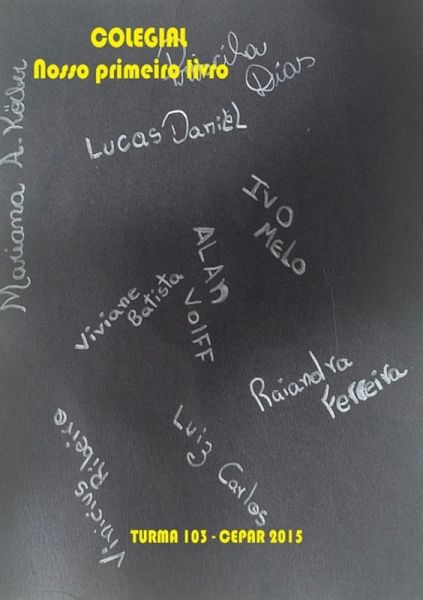 COLEGIAL
Nosso primeiro livro
Priscila
Dias
Mariana A. Köder
Lucas Daniel
IVO
MELO
ALAN
VOIFF
Viviane
Batista
Raiandra
Ferreira
Luiz Carlos
Vinicius Ribeiro
TURMA 103 - CEPAR 2015